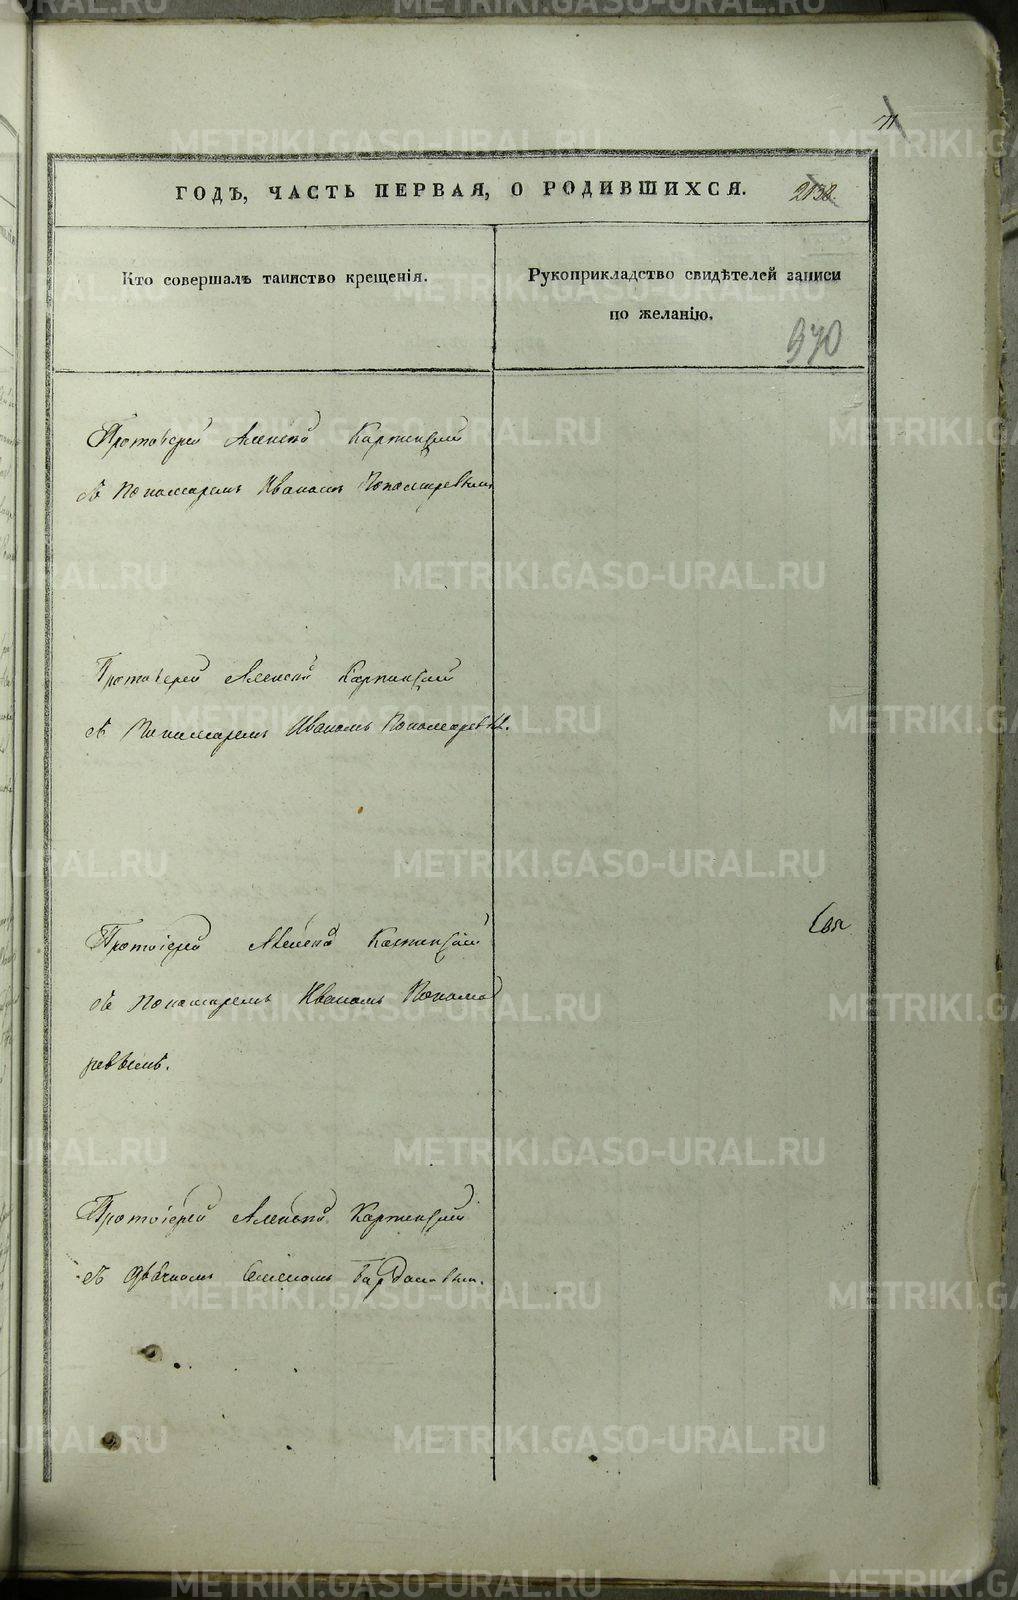 71
ГОДЪ, ЧАСТЬ ПЕРВАЯ, О РОДИВШИХСЯ. 2132.
Кто совершалъ таинство крещенія.
Рукоприкладство свидѣтелей записи
по желанію.
970
Протоіерей Алексѣй Карпинскій
съ Пономаремъ Иваномъ Пономаревымъ
Протоіерей Алексѣй Карпинскій
съ Пономаремъ Иваномъ Пономаревым.
Протоіерей Алексѣй Карпинскій
съ Пономаремъ Иваномъ Понома
ревымъ.
Протоіерей Алексѣй Карпинскій
съ Дьячкомъ Семеномъ
METRIKI.GASO-URAL.RU